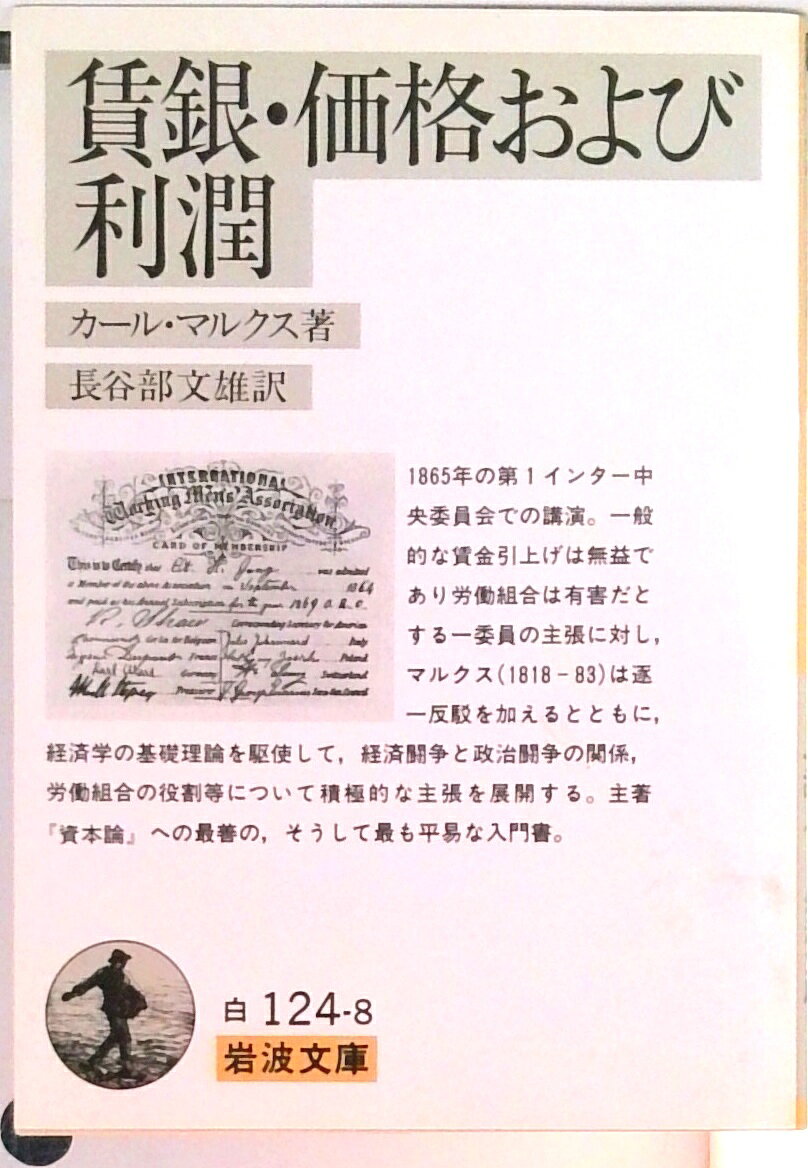 賃銀・価格および
利潤
カール・マルクス著
長谷部文雄訳
INTERNATIONAL
Working Men's Association
CARD OF MEMBERSHIP
This is to Certify that H. Jung was admitted
a Member of the above Association in September 1864
and paid as his Annual Subscription for the year 1869
R. Shaw Corresponding Secretary for America
Belgium Italy
France Poland
Germany Switzerland
Treasurer
1865年の第1インター中
央委員会での講演。一般
的な賃金引上げは無益で
あり労働組合は有害だと
する一委員の主張に対し,
マルクス(1818-83)は逐
一反駁を加えるとともに,
経済学の基礎理論を駆使して, 経済闘争と政治闘争の関係,
労働組合の役割等について積極的な主張を展開する。主著
『資本論』への最善の, そうして最も平易な入門書。
白 124-8
岩波文庫